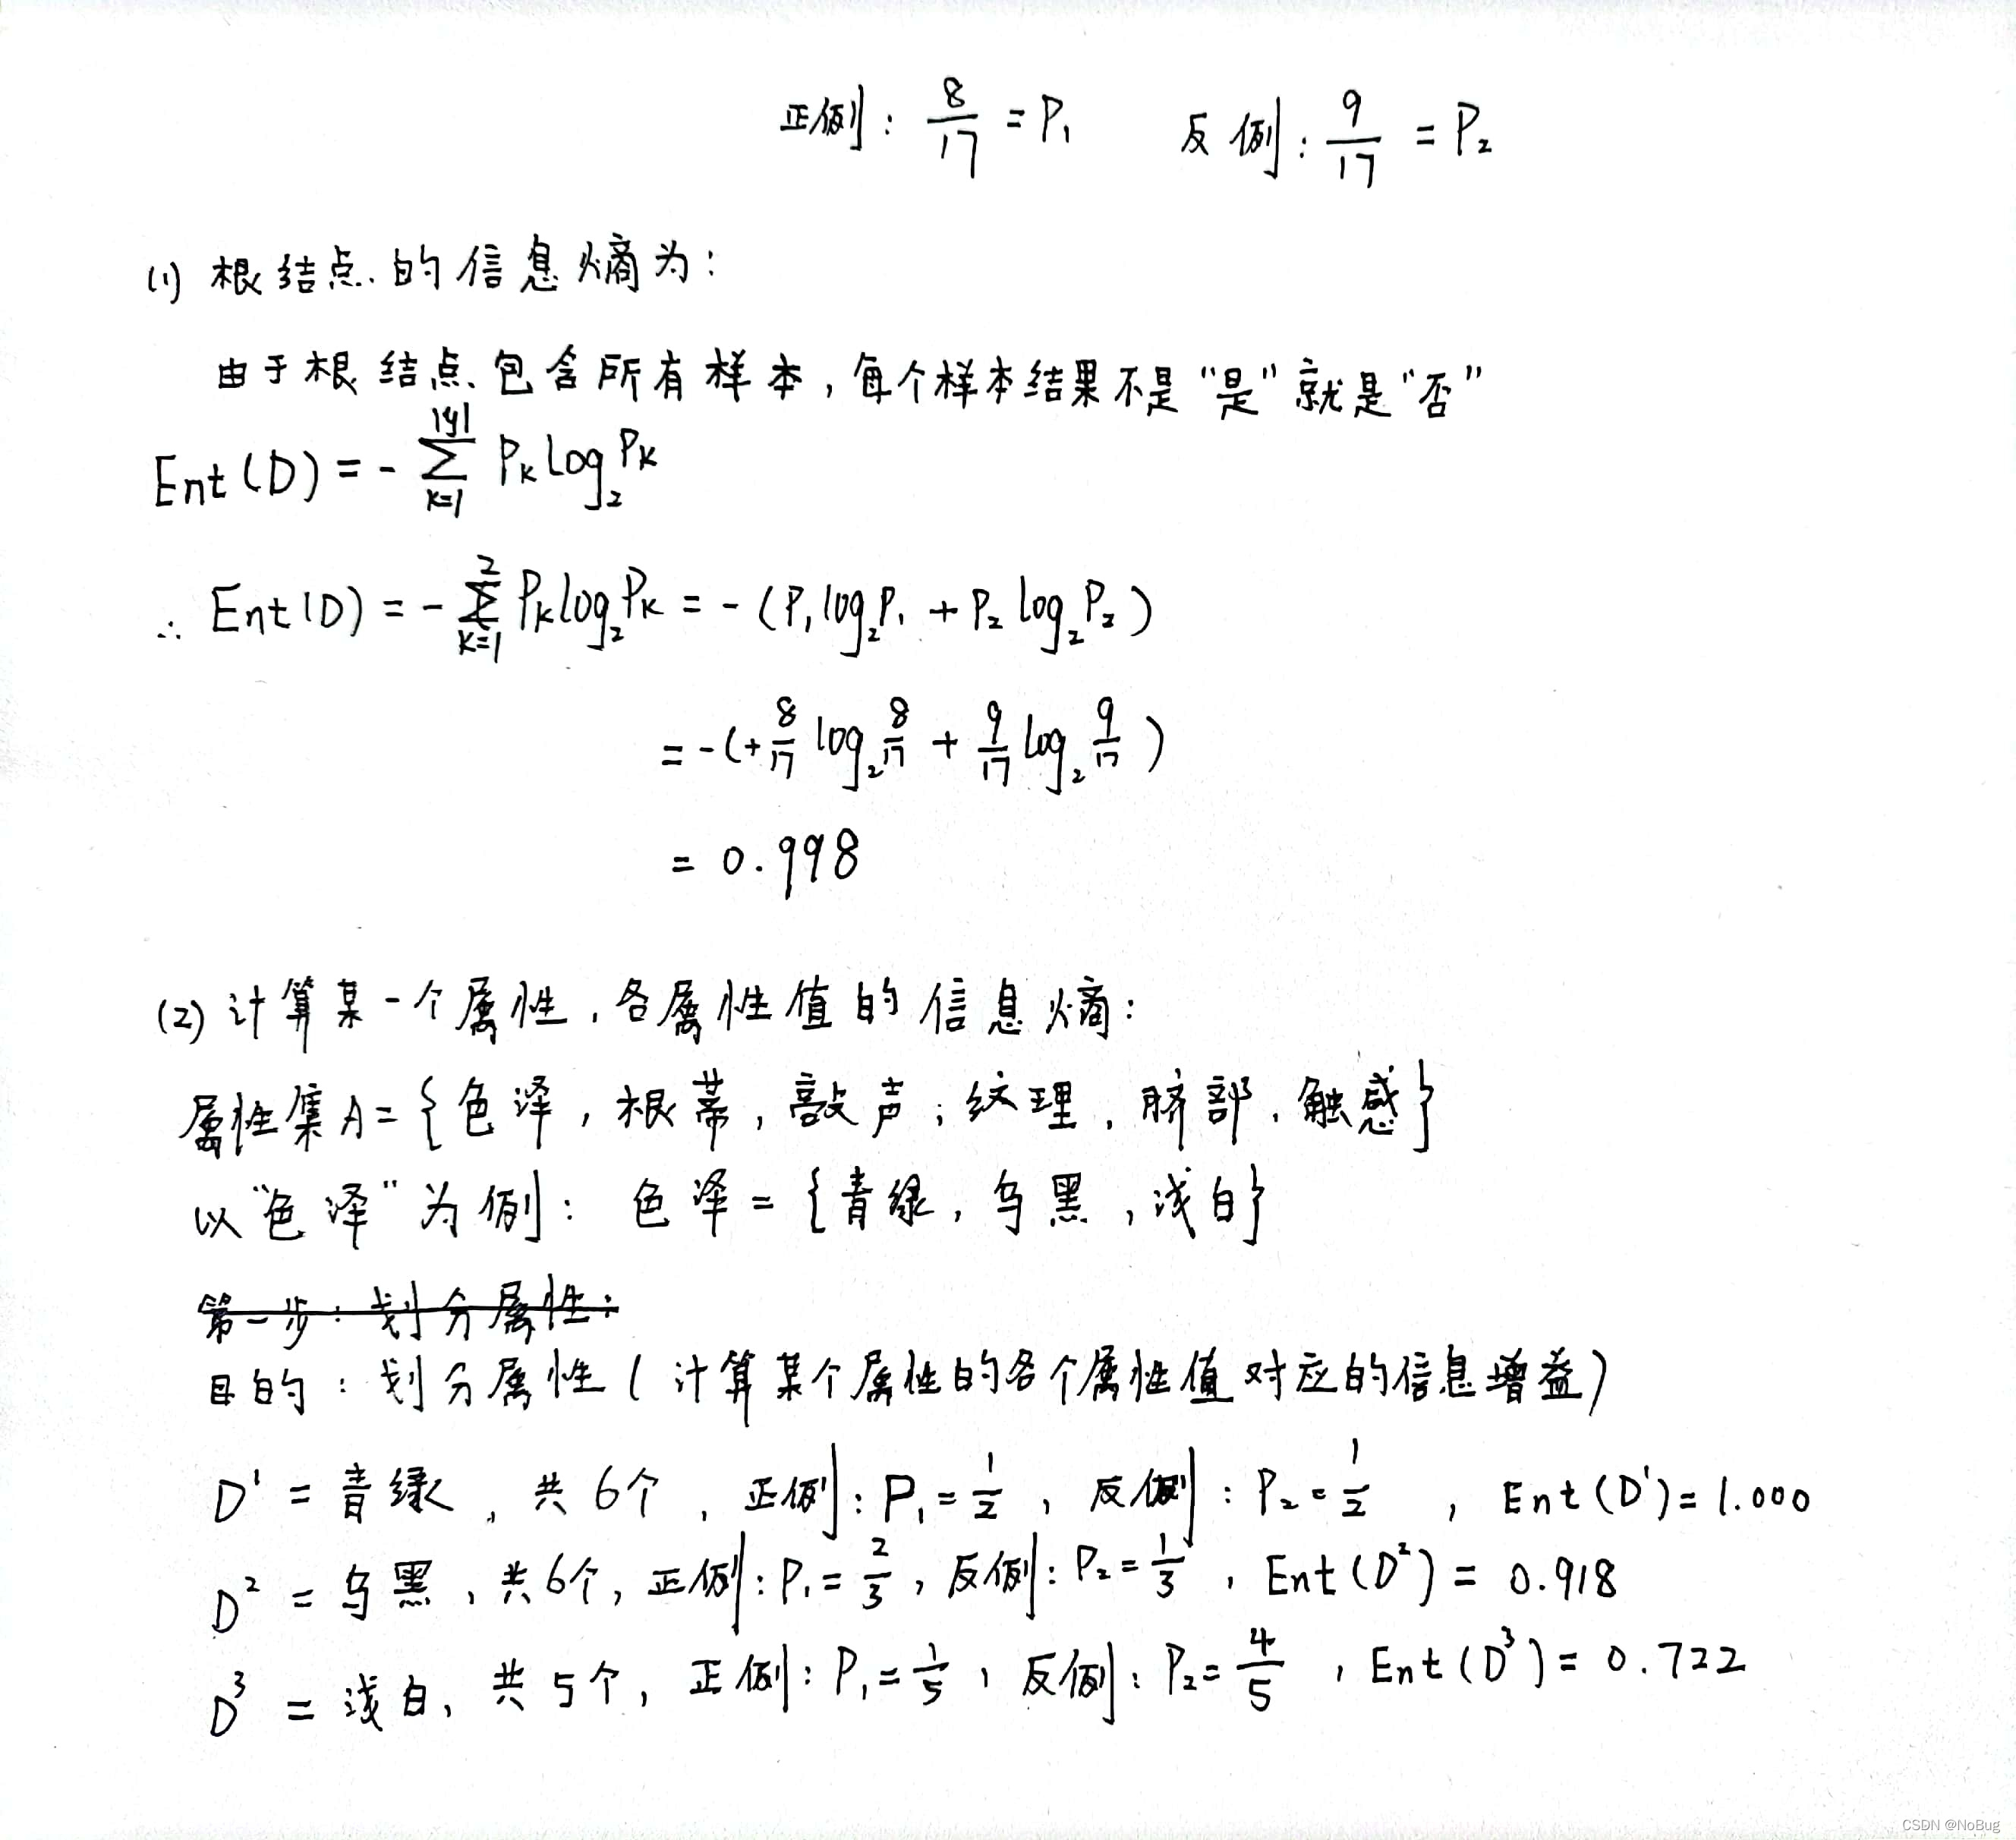 正例: 8/17 = P₁  反例: 9/17 = P₂
(1) 根结点的信息熵为:
由于根结点包含所有样本,每个样本结果不是“是”就是“否”
Ent(D) = - ∑_{k=1}^{|y|} Pₖ log₂ Pₖ
∴ Ent(D) = - ∑_{k=1}^{2} Pₖ log₂ Pₖ = - (P₁ log₂ P₁ + P₂ log₂ P₂)
= - (+ 8/17 log₂ 8/17 + 9/17 log₂ 9/17)
= 0.998
(2) 计算某一个属性,各属性值的信息熵:
属性集A={色泽,根蒂,敲声,纹理,脐部,触感}
以“色泽”为例: 色泽={青绿,乌黑,浅白}
第一步:划分属性:
目的:划分属性(计算某个属性的各个属性值对应的信息增益)
D¹ = 青绿,共6个,正例: P₁=1/2,反例: P₂=1/2,Ent(D¹)=1.000
D² = 乌黑,共6个,正例: P₁=2/3,反例: P₂=1/3,Ent(D²)=0.918
D³ = 浅白,共5个,正例: P₁=1/5,反例: P₂=4/5,Ent(D³)=0.722
CSDN @NoBug